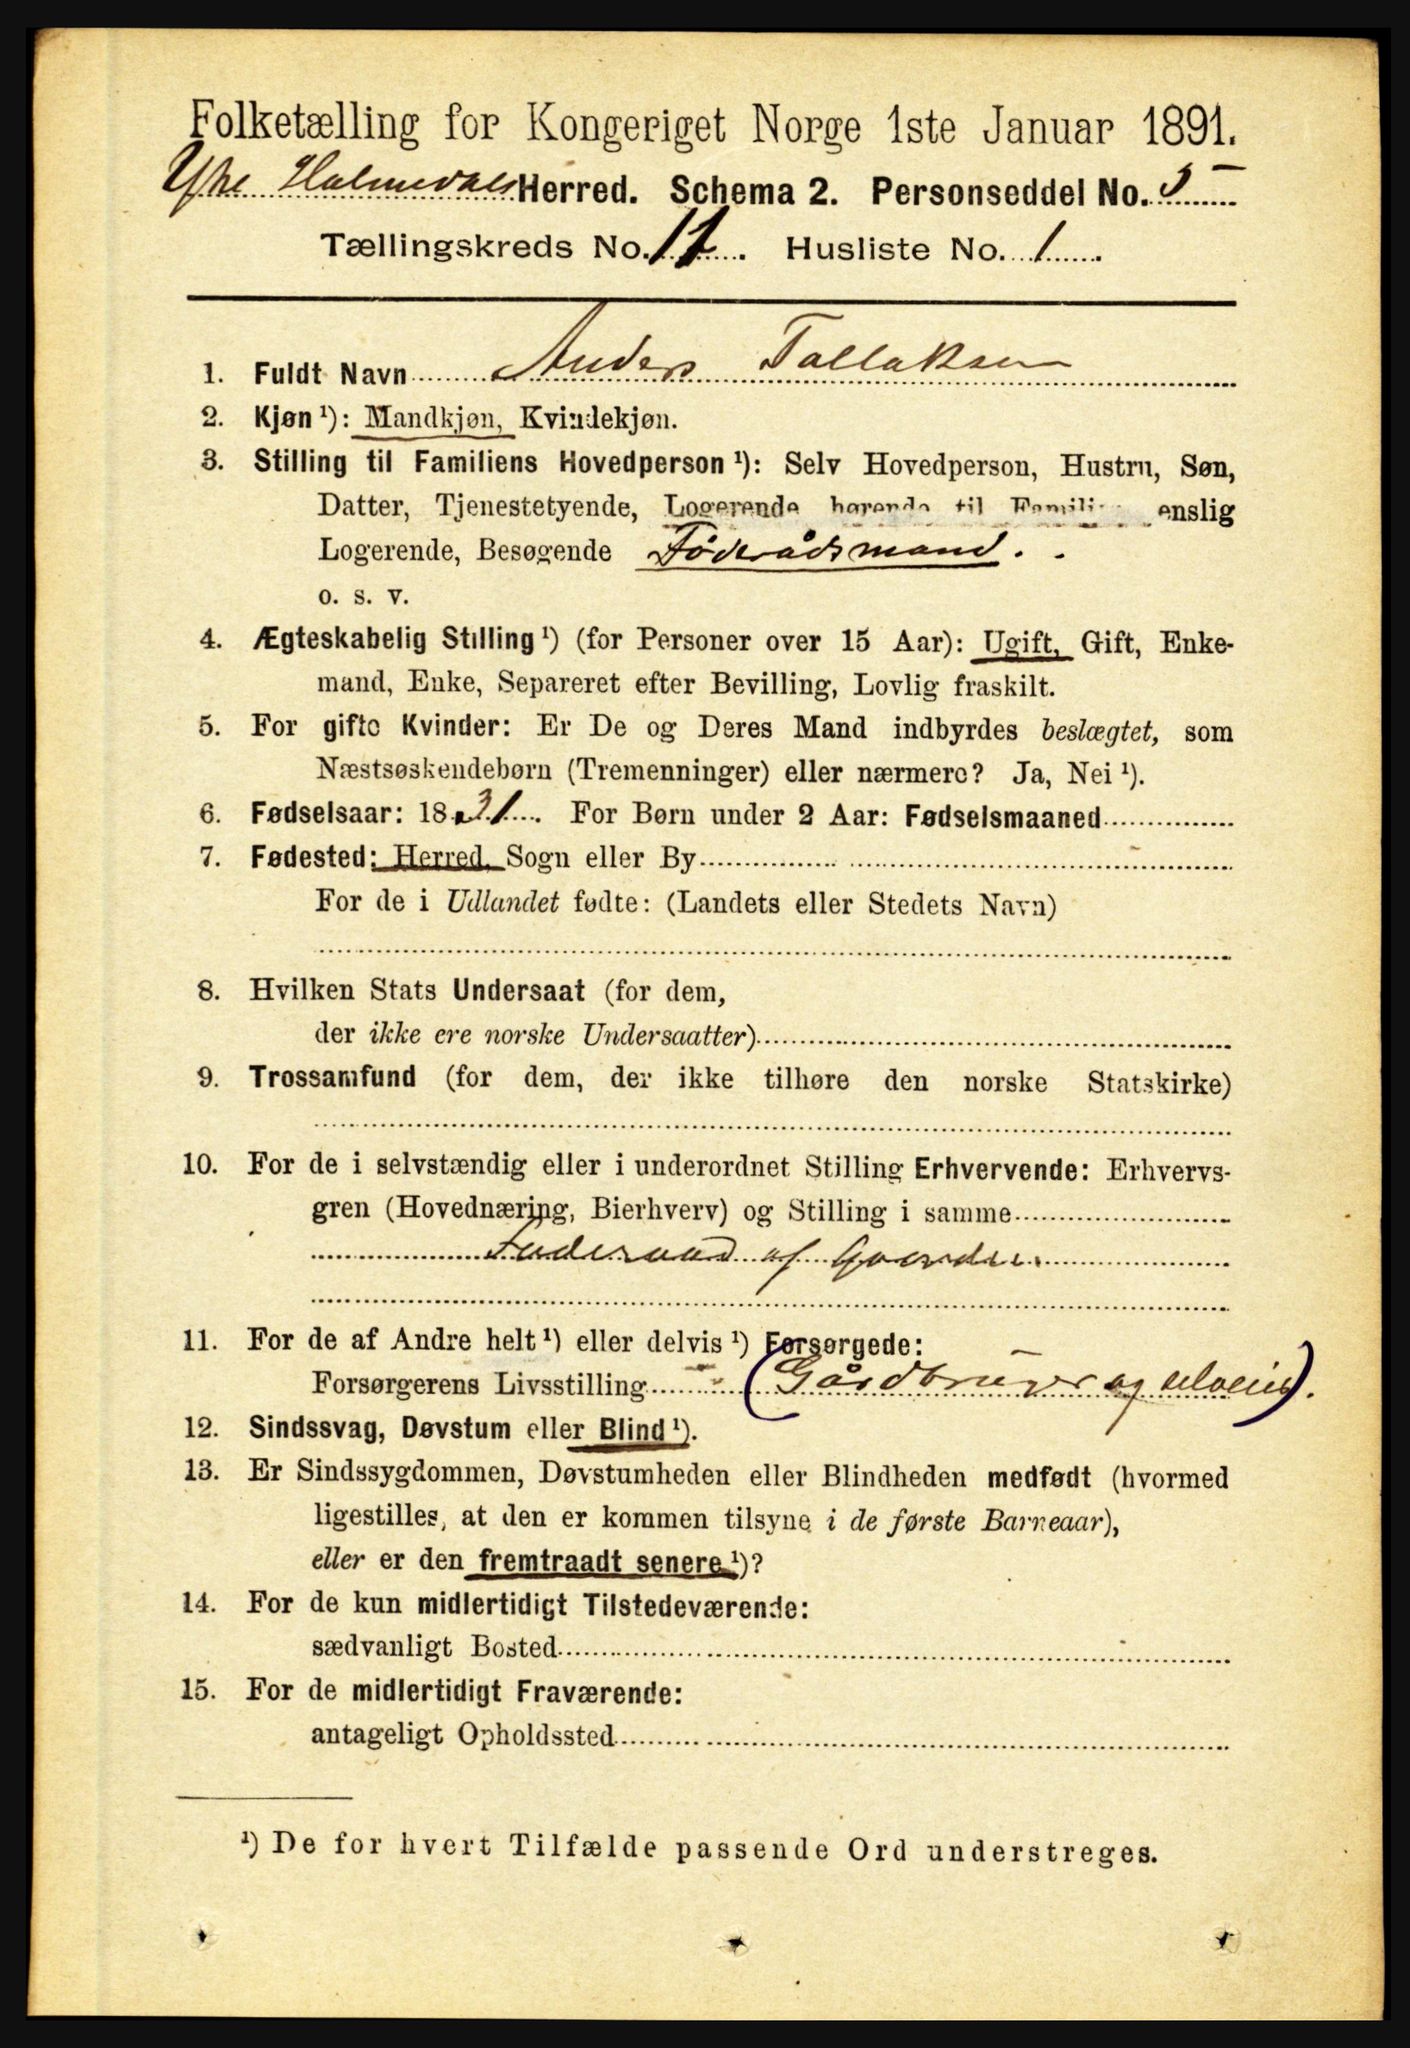 Folketælling for Kongeriget Norge 1ste Januar 1891.
Ytre Holmedals Herred. Schema 2. Personseddel No. 5
Tællingskreds No. 11. Husliste No. 1
1. Fuldt Navn Anders Tollaksen
2. Kjøn ¹): Mandkjøn, Kvindekjøn.
3. Stilling til Familiens Hovedperson ¹): Selv Hovedperson, Hustru, Søn,
Datter, Tjenestetyende, Logerende hørende til Familien, enslig
Logerende, Besøgende Föderådsmand.
o. s. v.
4. Ægteskabelig Stilling ¹) (for Personer over 15 Aar): Ugift, Gift, Enke-
mand, Enke, Separeret efter Bevilling, Lovlig fraskilt.
5. For gifte Kvinder: Er De og Deres Mand indbyrdes beslægtet, som
Næstsøskendebørn (Tremenninger) eller nærmere? Ja, Nei ¹).
6. Fødselsaar: 1831. For Børn under 2 Aar: Fødselsmaaned
7. Fødested: Herred, Sogn eller By
For de i Udlandet fødte: (Landets eller Stedets Navn)
8. Hvilken Stats Undersaat (for dem,
der ikke ere norske Undersaatter)
9. Trossamfund (for dem, der ikke tilhøre den norske Statskirke)
10. For de i selvstændig eller i underordnet Stilling Erhvervende: Erhvervs-
gren (Hovednæring, Bierhverv) og Stilling i samme
Foderaad af Gaarden.
11. For de af Andre helt ¹) eller delvis ¹) Forsørgede:
Forsørgerens Livsstilling (Gårdbruger og selveier).
12. Sindssvag, Døvstum eller Blind ¹).
13. Er Sindssygdommen, Døvstumheden eller Blindheden medfødt (hvormed
ligestilles, at den er kommen tilsyne i de første Barneaar),
eller er den fremtraadt senere ¹)?
14. For de kun midlertidigt Tilstedeværende:
sædvanligt Bosted
15. For de midlertidigt Fraværende:
antageligt Opholdssted
¹) De for hvert Tilfælde passende Ord understreges.